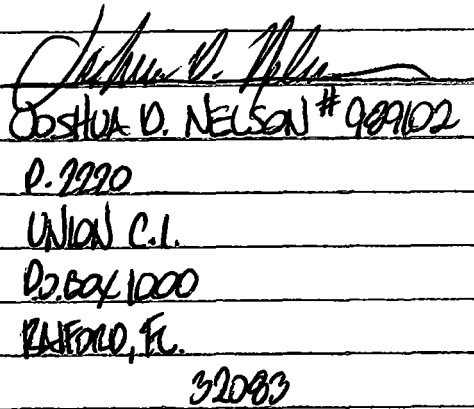 Joshua D. Nelson
JOSHUA D. NELSON # 989102
P.2220
UNION C.I.
P.O. BOX 1000
RAIFORD, FL.
32083